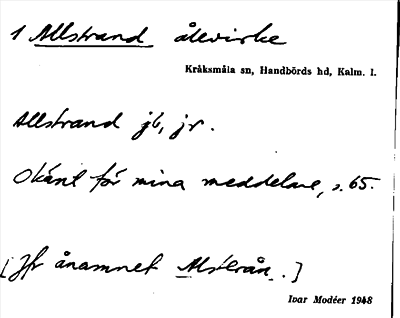 1 Allstrand åkvirke
Kråksmåla sn, Handbörds hd, Kalm. l.
Allstrand jb, jr.
Okänt för mina meddelare, s. 65.
[Jfr ånamnet Alsterån.]
Ivar Modéer 1948